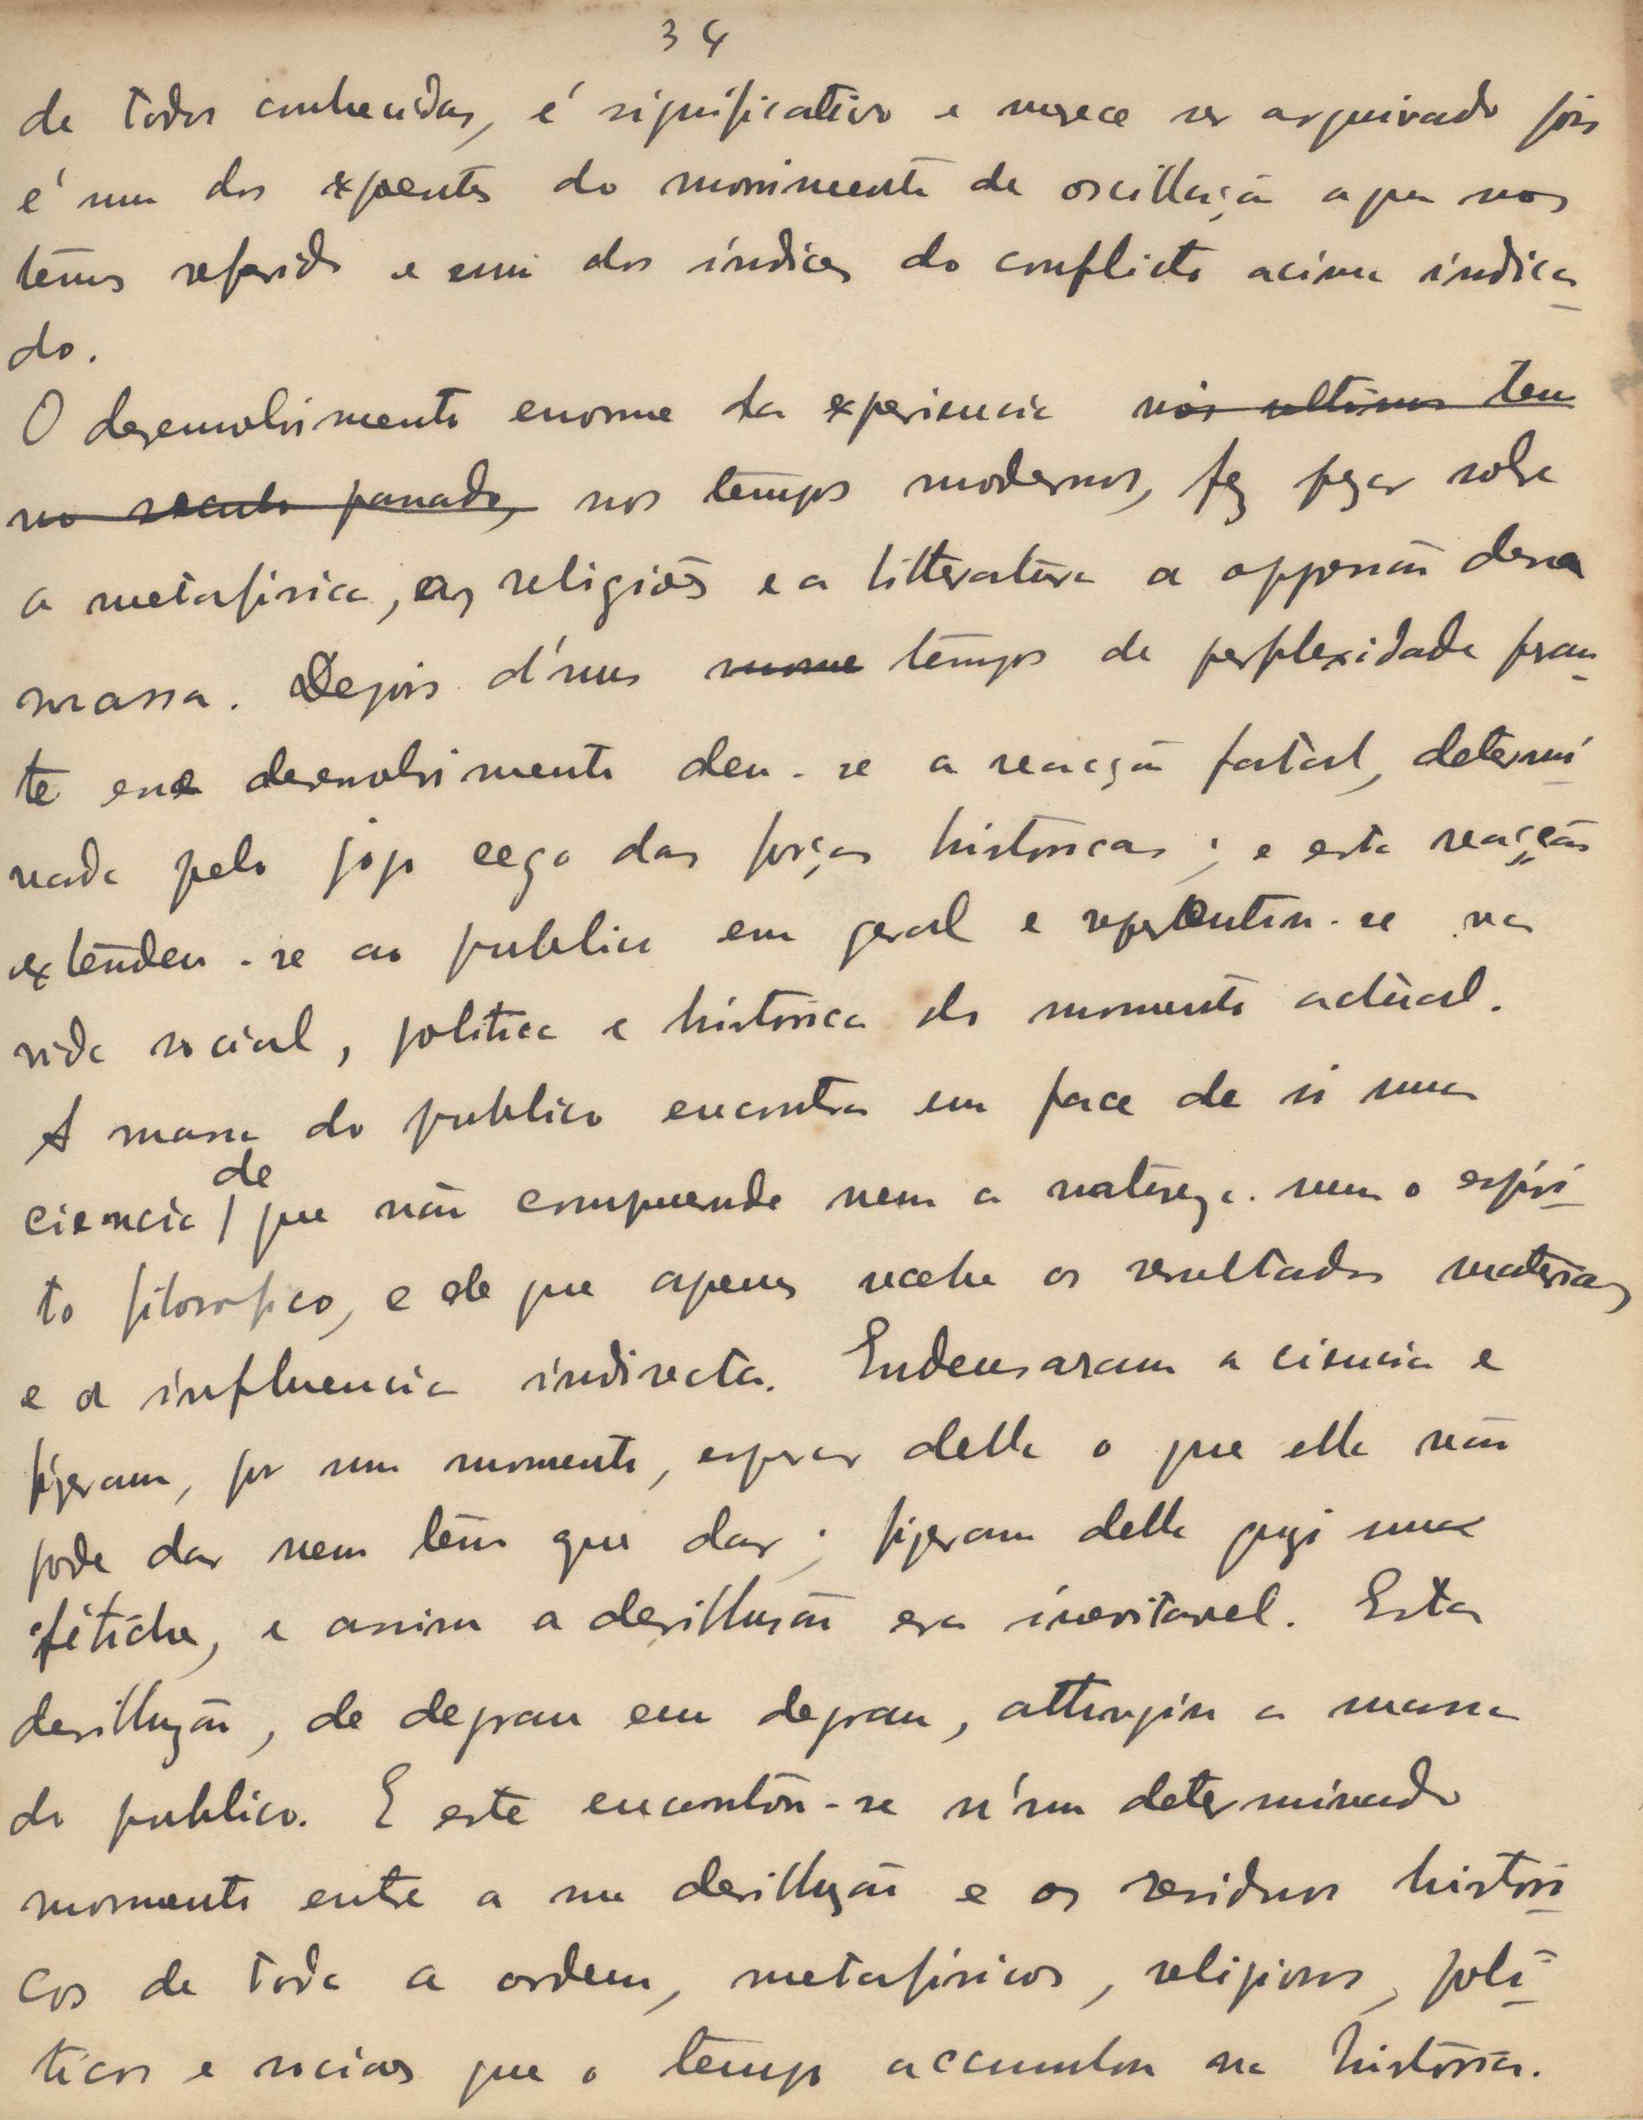 34
de todos conhecidas, é significativo e merece ser arquivado pois
é um dos expoentes do movimento de oscillação a que nos
temos referido e um dos indices do conflicto acima indica-
do.
O desenvolvimento enorme da experiencia nos ultimos tem
no seculo passado, nos tempos modernos, fez pezar sobre
a metafisica, as religiões e a litteratura a oppressão dessa
massa. Depois d'uns tempos de perplexidade peran-
te esse desenvolvimento deu-se a reacção fatal, determi-
nada pelo jogo cego das forças historicas; e esta reacção
extendeu-se ao publico em geral e repercutiu-se na
vida social, politica e historica do momento actual.
A massa do publico encontra em face de si uma
ciencia / de que não compreende nem a natureza nem o espiri-
to filosofico, e de que apenas recebe os resultados materiaes
e a influencia indirecta. Endeusaram a ciencia e
fizeram, por um momento, esperar della o que ella não
pode dar nem tem que dar; fizeram della quasi uma
fétiche, e assim a desillusão era inevitavel. Esta
desillusão, de degrau em degrau, attingiu a massa
do publico. E este encontrou-se n'um determinado
momento entre a sua desillusão e os residuos histori-
cos de toda a ordem, metafisicos, religiosos, poli-
ticos e sociaes que o tempo accumulou na historia.